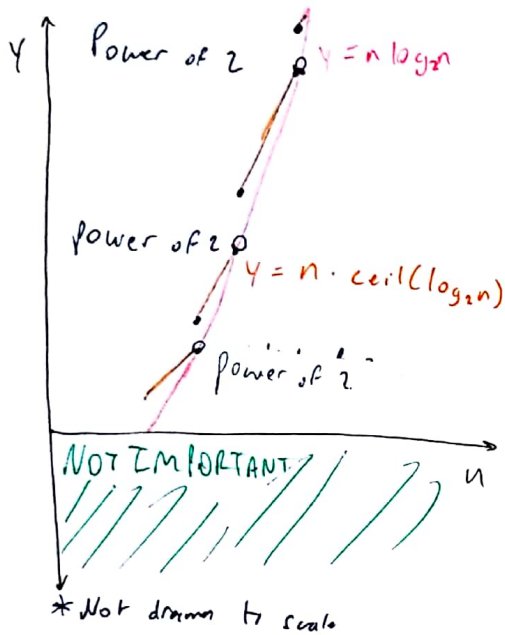 Y
Power of 2
Y = n log₂n
Power of 2
Y = n · ceil(log₂n)
Power of 2
NOT IMPORTANT
n
* Not drawn to scale